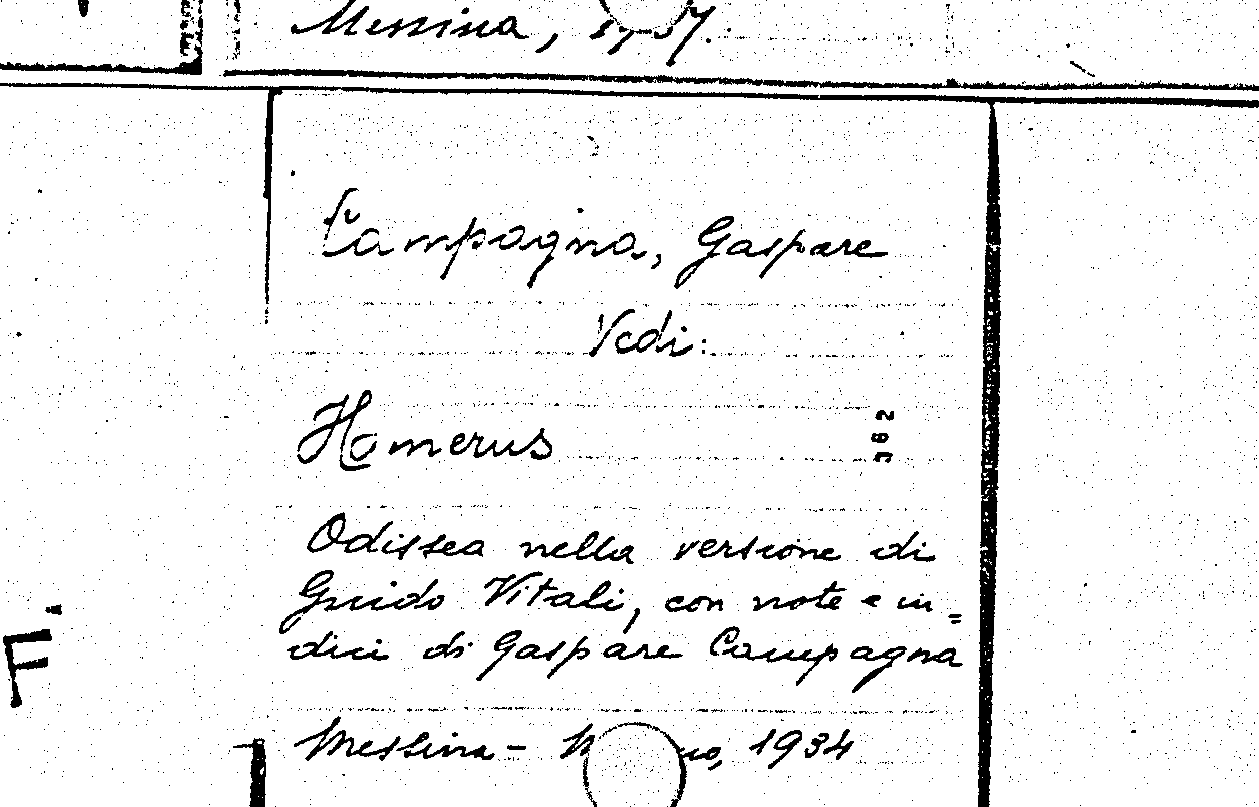 Messina,
Campagna, Gaspare
Vedi:
Homerus
362
Odissea nella versione di
Guido Vitali, con note e in=
dici di Gaspare Campagna
Messina - 1934
F